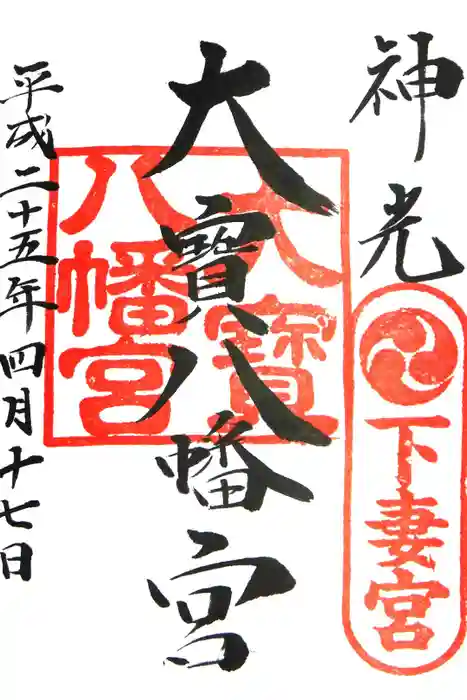 神光
下妻宮
大寶八幡宮
大寶
八幡宮
平成二十五年四月十七日